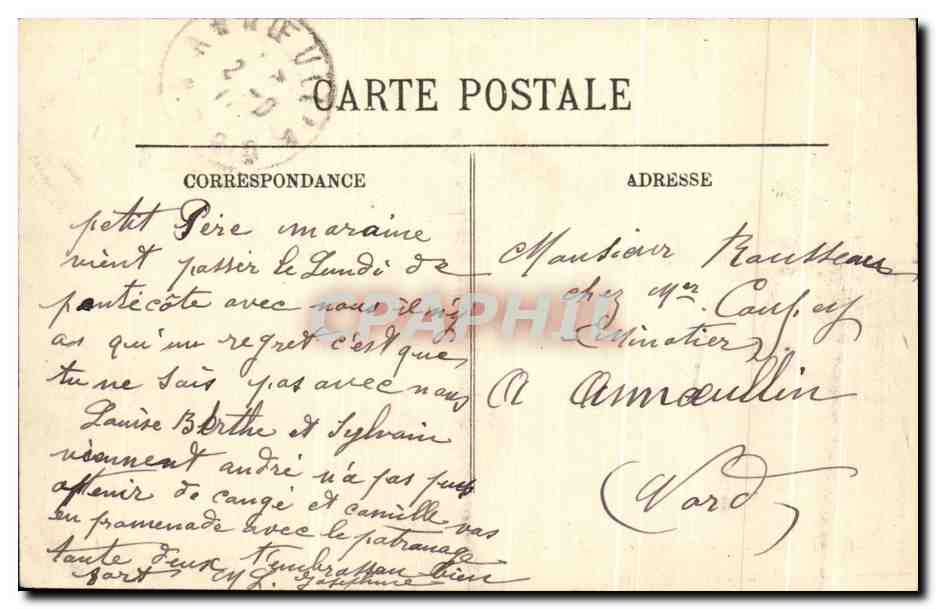 CARTE POSTALE
CORRESPONDANCE
petit Père maraine
vient passer le Lundi de
pentécôte avec nous il n'y
as qu'un regret c'est que
tu ne sois pas avec nous
Louise Berthe et Sylvain
viennent andré n'a pas pus
optenir de congé et camille vas
en promenade avec le patronage
toute deux t'embrasson bien
fort M L Josephine
ADRESSE
Monsieur Rousseau
chez Mer
A annœullin
(Nord)
CPAPHIL